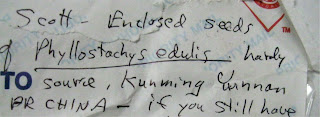 Scott - Enclosed seeds
of Phyllostachys edulis. hardy
TO source, Kunming Yunnan
PR CHINA - if you still have
TM